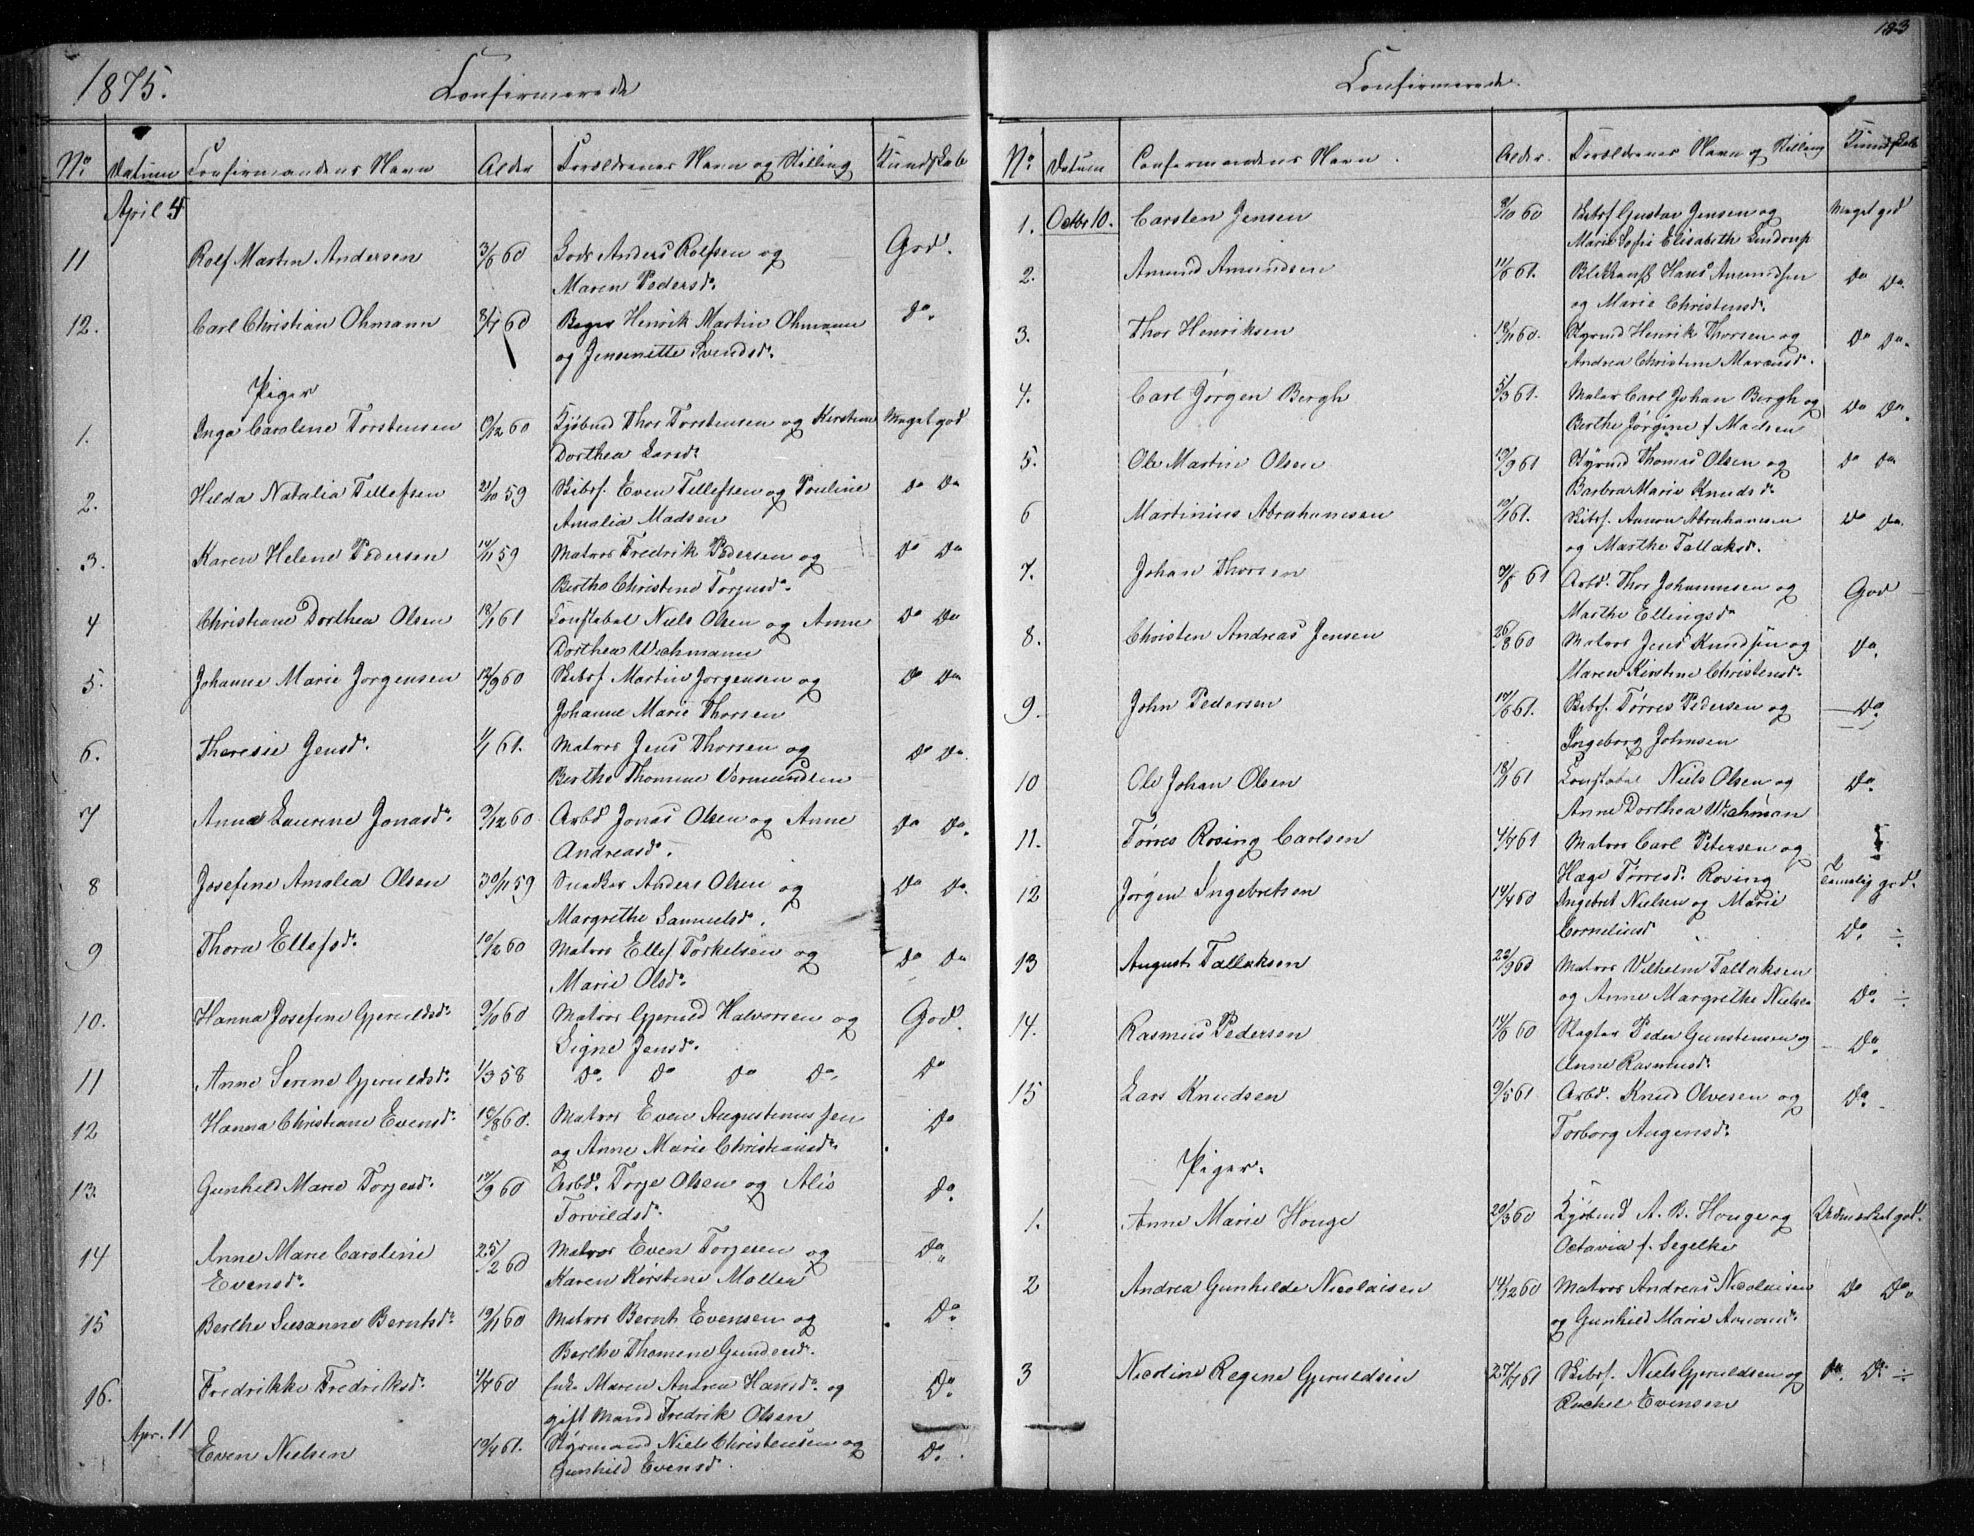 1875.
Confirmerede
No. Datum Confirmandens Navn Alder Forældrenes Navn og Stilling Kundskab
April 4
11 Rolf Martin Andersen 3/6 60 Lods Anders Rolfsen og God.
Maren Pedersd.
12. Carl Christian Ohmann 8/4 60 Bager Henrik Martin Ohmann Do.
og Jensinette Svendsd.
Piger
1. Inga Caroline Torstensen 19/12 60 Kjøbmd Thor Torstensen og Kirstine Meget god
Dorthea Larsd.
2. Hilda Natalia Tellefsen 21/10 59 Skibsf. Even Tellefsen og Pouline Do Do
Amalia Madsen
3. Karen Helene Pedersen 14/11 59 Matros Fredrik Pedersen og Do Do
Berthe Christine Torjusd.
4 Christiane Dorthea Olsen 18/1 61 Constabel Niels Olsen og Anne Do Do
Dorthea Wichmann
5. Johanne Marie Jorgensen 12/9 60 Skibsf Martin Jorgensen og Do Do
Johanne Marie Thorsen
6. Theresie Jensd. 1/1 61. Matros Jens Thorsen og Do Do.
Berthe Thomine Vermundsen
7 Anna Laurine Jonasd. 7/12 60 Arbd Jonas Olsen og Anne Do Do.
Andreasd.
8 Josefine Amalia Olsen 30/11 59 Snedker Anders Olsen og Do Do.
Margrethe Samuelsd.
9 Thora Ellefsd. 10/2 60 Matros Ellef Torkelsen og Do Do
Marie Olsd.
10. Hanna Josefine Gjeruldsd. 9/10 60 Matros Gjeruld Halvorsen og God.
Signe Jensd.
11 Anne Serine Gjeruldsd. 1/3 58 Do. Do Do Do. Do
12 Hanna Christiane Evensd. 18/8 60. Matros Even Augustinussen Do
og Anne Marie Christiansd.
13. Gunhild Marie Torjesd. 17/9 60 Arbd. Torje Olsen og Alis Do.
Torvildsd.
14 Anne Marie Caroline 25/2 60 Matros Even Torjesen og Do
Evensd. Karen Kirstine Møller
15 Berthe Susanne Berntsd. 19/11 60 Matros Bernt Evensen og Do
Berthe Thomine Gundersd.
16. Fredrikke Fredriksd. 4/4 60 Enke Maren Andrea Hansd. og Do.
gift Mand Fredrik Olsen
Apr. 11 Even Nielsen 19/4 61. Styrmand Niels Christensen og Do.
Gunhild Evensd.
183
Confirmerede.
No. Datum Confirmandens Navn. Alder. Forældrenes Navn og Stilling Kundskab
1. Octbr 10. Carsten Jensen 9/10 60 Skibsf Gustav Jensen og Meget god
Marie Sofie Elisabeth Lindrup
2. Amund Amundsen 11/6 61. Hans Amundsen Do Do.
og Marie Christensd.
3. Thor Henriksen 18/11 60. Styrmd Henrik Thorsen og Do Do.
Andrea Christine Marcusd.
4. Carl Jørgen Bergh 5/3 61. Maler Carl Johan Bergh og Do Do.
Berthe Jørgine f Madsen
5. Ole Martin Olsen 19/9 61 Styrmd Thomas Olsen og Do Do
Barbra Marie Knudsd.
6 Martinius Abrahamsen 12/1 61. Skibsf. Aanon Abrahamsen Do Do.
og Marthe Tallaksd.
7. Johan Thorsen 7/8 61 Arbd. Thor Johannesen og God
Marthe Ellingsd.
8. Christen Andreas Jensen 26/8 60 Matros Jens Knudsen og Do.
Maren Kirstine Christensd.
9. John Pedersen 17/6 61. Skibsf. Tørres Pedersen og Do.
Ingeborg Johnsen
10 Ole Johan Olsen 18/1 61 Constabel Niels Olsen og Do.
Anne Dorthea Wichman
11. Tørres Rosing Carlsen 4/4 61 Matros Carl Petersen og
Hæge Tørresd. Rosing Temelig god.
12 Jørgen Ingebretsen 14/4 60 Ingebret Nielsen og Marie
Corneliusd. Do. ÷
13 August Tallaksen 22/9 60 Matros Vilhelm Tallaksen
og Anne Margrethe Nielsen Do. ÷
14. Rasmus Pedersen 14/6 60 Slagter Peder Gunstensen og Do.
Anne Rasmusd.
15 Lars Knudsen 9/5 61 Arbd. Knud Olvesen og Do.
Torborg Augensd.
Piger.
1. Anne Marie Houge 20/3 60 Kjøbmd A. B. Houge og Udmærket god.
Octavia f. Segelke
2 Andrea Gunhilde Nicolaisen 14/12 60 Matros Andreas Nicolaisen Do Do.
og Gunhild Marie
3 Nicoline Regine Gjeruldsen 27/4 61 Skibsf. Niels Gjeruldsen og Do. Do ÷
Rachel Evensen